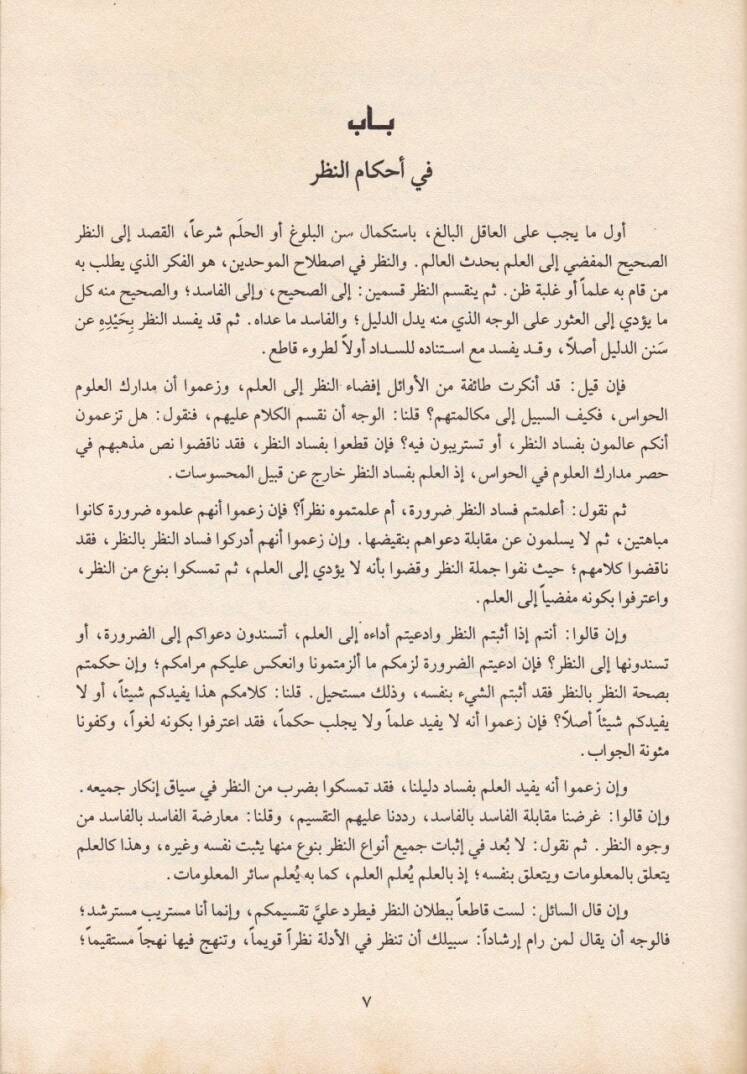 بـاب
في أحكام النظر
أول ما يجب على العاقل البالغ، باستكمال سن البلوغ أو الحلَم شرعاً، القصد إلى النظر
الصحيح المفضي إلى العلم بحدث العالم. والنظر في اصطلاح الموحدين، هو الفكر الذي يطلب به
من قام به علماً أو غلبة ظن. ثم ينقسم النظر قسمين: إلى الصحيح، وإلى الفاسد؛ والصحيح منه كل
ما يؤدي إلى العثور على الوجه الذي منه يدل الدليل؛ والفاسد ما عداه. ثم قد يفسد النظر بِحَيْدِهِ عن
سَنن الدليل أصلاً، وقـد يفسد مع اسـتناده للسـداد أولاً لطروء قاطع.
فإن قيل: قد أنكرت طائفة من الأوائل إفضاء النظر إلى العلم، وزعموا أن مدارك العلوم
الحواس، فكيف السبيل إلى مكالمتهم؟ قلنا: الوجه أن نقسم الكلام عليهم، فنقول: هل تزعمون
أنكم عالمون بفساد النظر، أو تستريبون فيه؟ فإن قطعوا بفساد النظر، فقد ناقضوا نص مذهبهم في
حصر مدارك العلوم في الحواس، إذ العلم بفساد النظر خارج عن قبيل المحسوسات.
ثم نقول: أعلمتم فساد النظر ضرورة، أم علمتموه نظراً؟ فإن زعموا أنهم علموه ضرورة كانوا
مباهتين، ثم لا يسلمون عن مقابلة دعواهم بنقيضها. وإن زعموا أنهم أدركوا فساد النظر بالنظر، فقد
ناقضوا كلامهم؛ حيث نفوا جملة النظر وقضوا بأنه لا يؤدي إلى العلم، ثم تمسكوا بنوع من النظر،
واعترفوا بكونه مفضياً إلى العلم.
وإن قالوا: أنتم إذا أثبتم النظر وادعيتم أداءه إلى العلم، أتسندون دعواكم إلى الضرورة، أو
تسندونها إلى النظر؟ فإن ادعيتم الضرورة لزمكم ما ألزمتمونا وانعكس عليكم مرامكم؛ وإن حكمتم
بصحة النظر بالنظر فقد أثبتم الشيء بنفسه، وذلك مستحيل. قلنا: كلامكم هذا يفيدكم شيئاً، أو لا
يفيدكم شيئاً أصلاً؟ فإن زعموا أنه لا يفيد علماً ولا يجلب حكماً، فقد اعترفوا بكونه لغواً، وكفونا
مئونة الجواب.
وإن زعموا أنه يفيد العلم بفساد دليلنا، فقد تمسكوا بضرب من النظر في سياق إنكار جميعه.
وإن قالوا: غرضنا مقابلة الفاسد بالفاسد، رددنا عليهم التقسيم، وقلنا: معارضة الفاسد بالفاسد من
وجوه النظر. ثم نقول: لا بُعد في إثبات جميع أنواع النظر بنوع منها يثبت نفسه وغيره، وهذا كالعلم
يتعلق بالمعلومات ويتعلق بنفسه؛ إذ بالعلم يُعلم العلم، كما به يُعلم سائر المعلومات.
وإن قال السائل: لست قاطعاً ببطلان النظر فيطرد عليَّ تقسيمكم، وإنما أنا مستريب مسترشد؛
فالوجه أن يقال لمن رام إرشاداً: سبيلك أن تنظر في الأدلة نظراً قويماً، وتنهج فيها نهجاً مستقيماً؛
٧